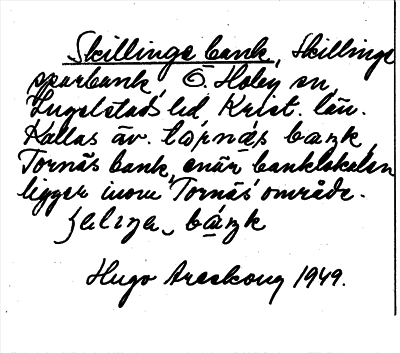 Skillinge bank, Skillinge
sparbank, Ö. Hoby sn,
Ingelstads hd Krist. län.
Kallas äv. to̩rnäs baŋk,
Tornäs bank, enär banklokalen
ligger inom Tornäs' område.
baŋk
Hugo Areskoug 1949.